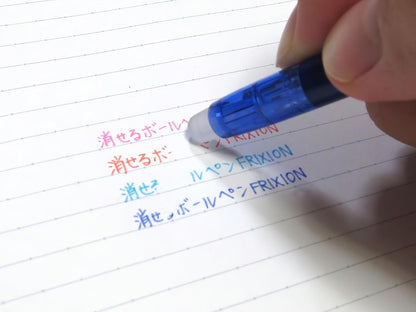 消せるボールペ
消せるボ ペンFRIXION
消せ ルペンFRIXION
消せ ボールペンFRIXION